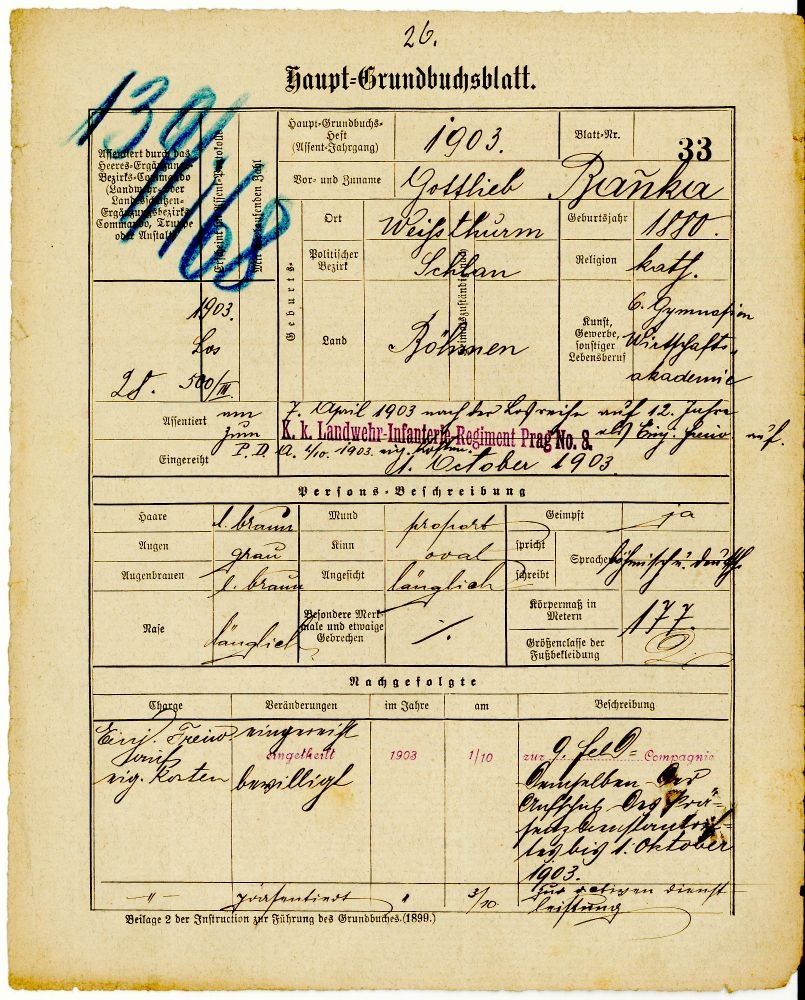 26.
Haupt-Grundbuchsblatt.
139/168
Assentiert durch das
Heeres-Ergänzungs-
Bezirks-Commando
(Landwehr- oder
Landesschützen-
Ergänzungsbezirks-
Commando, Truppe
oder Anstalt)
Erscheint im Assent-Protokolle
Mit der laufenden Zahl
1903.
Los
28. 500/III.
Haupt-Grundbuchs-
Heft
(Assent-Jahrgang)
1903.
Blatt-Nr.
33
Vor- und Zuname
Gottlieb Baňka
Geburts-
Ort
Weißthurm
Geburtsjahr
1880.
Politischer
Bezirk
Schlan
Religion
kath.
Land
Böhmen
Kunst,
Gewerbe,
sonstiger
Lebensberuf
6. Gymnasien
Wirtschafts-
akademie
Assentiert
am 7. April 1903 nach der Losreihe auf 12 Jahre
zum K. k. Landwehr-Infanterie-Regiment Prag No. 8. als Einj. freiw. auf.
P. D. A. 4/10. 1903. eig. Kosten.
Eingereiht
1. October 1903
Persons-Beschreibung
Haare l. braun
Mund proport
Geimpft ja
Augen grau
Kinn oval
spricht
Sprachen böhmisch u. deutsch
Augenbrauen l. braun
Angesicht länglich
schreibt
Nase länglich
Besondere Merk-
male und etwaige
Gebrechen
./.
Körpermaß in
Metern
177.
Größenclasse der
Fußbekleidung
2.
Nachgefolgte
Charge Veränderungen im Jahre am Beschreibung
Einj. Freiw. eingereiht
auf eingetheilt 1903 1/10 zur 9. Feld- Compagnie
eig. Kosten bewilligt
Demselben der
Aufschub des Prä-
senzdienstantrit-
tes bis 1. Oktober
1903.
-"- präsentiert " 3/10. zur activen Dienst-
leistung
Beilage 2 der Instruction zur Führung des Grundbuches. (1899.)